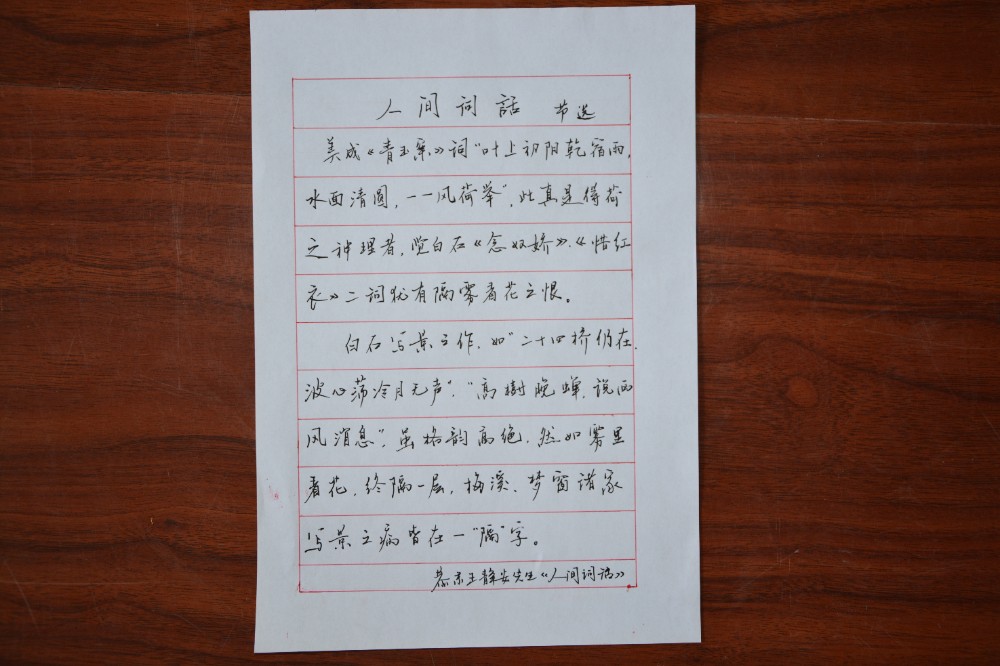 人间词話 节选
美成《青玉案》词“叶上初阳乾宿雨,
水面清圆,一一风荷举”,此真是得荷
之神理者,觉白石《念奴娇》、《惜红
衣》二词犹有隔雾看花之恨。
白石写景之作,如“二十四桥仍在,
波心荡冷月无声”,“高樹晚蝉,说西
风消息”,虽格韵高绝,然如雾里
看花,终隔一层,梅溪、梦窗诸家
写景之病皆在一“隔”字。
王静安先生《人间词话》